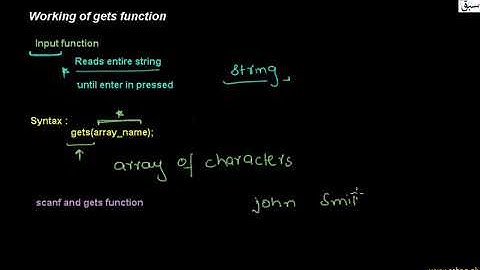 Working of gets function
سبق
Input function
Reads entire string
until enter in pressed
string
Syntax :
gets(array_name);
array of characters
scanf and gets function
john Smit